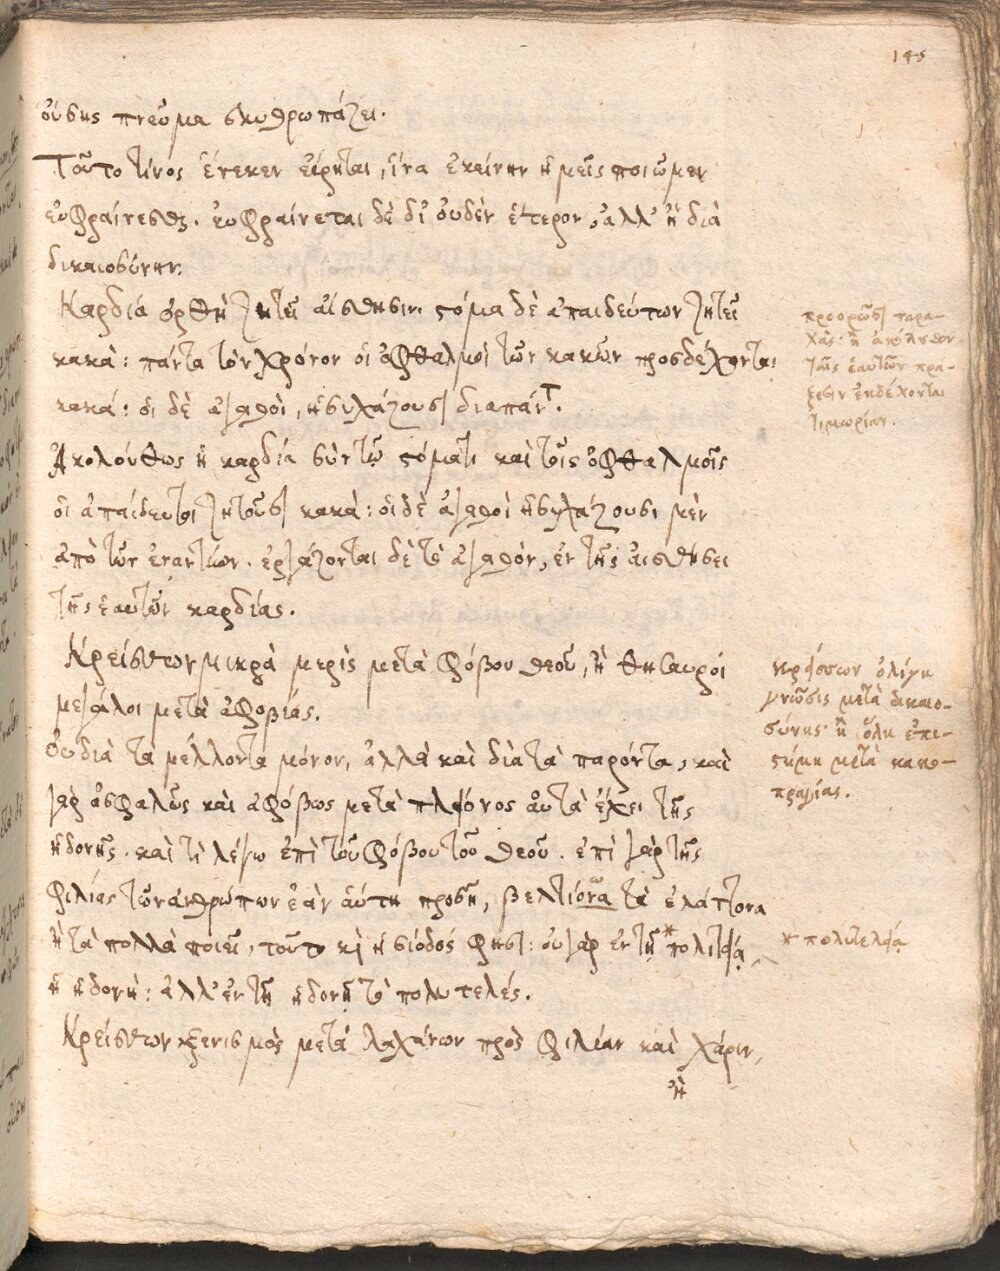 145
οὔσης πνεῦμα σκυθρωπάζει.
Τοῦτο τίνος ἕνεκεν εἴρηται, ἵνα ἐκείνην ἡμεῖς ποιῶμεν
εὐφραίνεσθαι. εὐφραίνεται δὲ δι' οὐδὲν ἕτερον, ἀλλ' ἢ διὰ
δικαιοσύνην.
Καρδία ὀρθὴ ζητεῖ αἴσθησιν. στόμα δὲ ἀπαιδεύτων ζητεῖ
κακά: πάντα τὸν χρόνον οἱ ὀφθαλμοὶ τῶν κακῶν προσδέχονται
κακά: οἱ δὲ ἀγαθοὶ, ἡσυχάζουσι διαπάντ.
Ἀκολούθως ἡ καρδία σὺν τῷ στόματι καὶ τοῖς ὀφθαλμοῖς
οἱ ἀπαίδευτοι ζητοῦσι κακά: οἱ δὲ ἀγαθοὶ ἡσυχάζουσι μὲν
ἀπὸ τῶν ἐναντίων. ἐργάζονται δὲ τὸ ἀγαθὸν, ἐν τῆς αἰσθήσει
τῆς ἑαυτῶν καρδίας.
Κρείσσων μικρὰ μερὶς μετὰ φόβου θεοῦ, ἢ θησαυροὶ
μεγάλοι μετὰ ἀφοβίας.
Οὐ διὰ τὰ μέλλοντα μόνον, ἀλλὰ καὶ διὰ τὰ παρόντα, καὶ
γὰρ ἀσφαλῶς καὶ ἀφόβως μετὰ πλείονος αὐτὰ ἔχει τῆς
ἡδονῆς. καὶ τί λέγω ἐπὶ τοῦ φόβου τοῦ θεοῦ. ἐπὶ γὰρ τῆς
φιλίας τῶν ἀνθρώπων ἐὰν αὕτη προσῇ, βελτίονα τὰ ἐλάττονα
ἢ τὰ πολλὰ ποιεῖ, τοῦτο κὶ ἡσίοδός φησι: οὐ γὰρ ἐν τῇ *πολιτείᾳ
ἡ ἡδονή: ἀλλ' ἐν τῇ ἡδονῇ τὸ πολυτελές.
Κρείσσων ξενισμὸς μετὰ λαχάνων πρὸς φιλίαν καὶ χάριν,
ἢ
προορῶσι ταρα-
χάς· ἢ ἀκόλουθον
ταῖς ἑαυτῶν πρά-
ξεσιν ἐκδέχονται
τιμωρίαν.
κρείσσων ὀλίγη
γνῶσις μετὰ δικαιο-
σύνης· ἢ ὅλη ἐπι-
στήμη μετὰ κακο-
πραγίας.
* πολυτελείᾳ